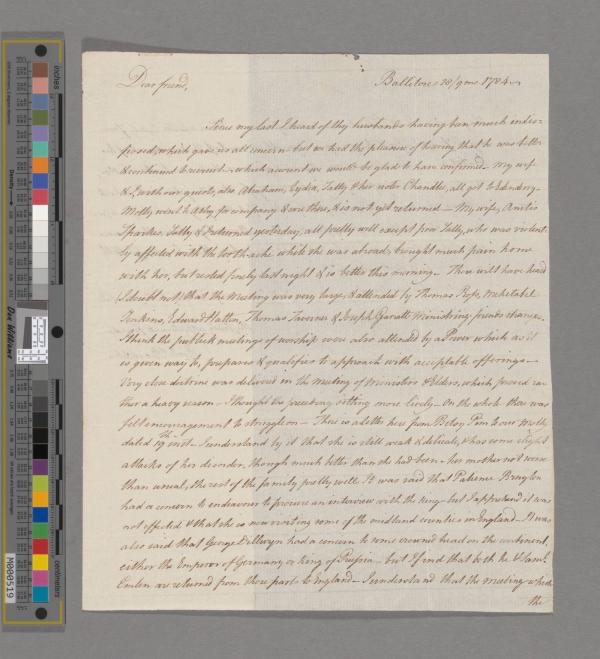 Dear friend,
Ballitore 28/9mo 1784
Since my last I heard of thy husbands having been much indis=
posed, which gave us all concern but we had the pleasure of hearing that he was better
& continued to recruit, which account we would be glad to have confirmed. My wife
& I, with our guests, also Abraham, Lydia, Sally & her sister Chandlee, all got to Edendery.
Molly went to for company & was there, & is not yet returned — My wife,
Sparkes, Sally & I returned yesterday, all pretty well except poor Sally, who was violent=
ly affected with the tooth-ache while she was abroad, brought much pain home
with her, but rested finely last night & is better this morning. Thou wilt have heard
(I doubt not) that the Meeting was very large, & attended by Thomas Ross, Mehetabel
Jenkins, Edward Hatton, Thomas & Joseph Garratt Ministring friends strangers.
I think the publick meetings of worship were also attended by a Power which as it
is given way to, prepares & qualifies to approach with acceptable offerings —
Very close doctrine was delivered in the meeting of Ministers & Elders, which proved ra=
ther a heavy season — I thought the preceding sitting more lively — On the whole there was
felt encouragement to struggle on — There is a letter here from Betsy Pim to our Molly
dated 19th inst. I understand by it that she is still weak & delicate, & has some slight
attacks of her disorder, though much better than she had been — her mother not worse
than usual, the rest of the family pretty well. It was said that Patience Brayton
had a concern to endeavour to procure an interview with the king but I apprehend it was
not effected & that she is now visiting some of the midland counties in England — It was
also said that George Dillwyn had a concern to some crowned head on the continent,
either the Emperor of Germany or king of Prussia — but I find that both he & Saml.
Emlen are returned from those parts to England — I understand that the meeting which
the
inches
centimeters
Don Williams
M000519